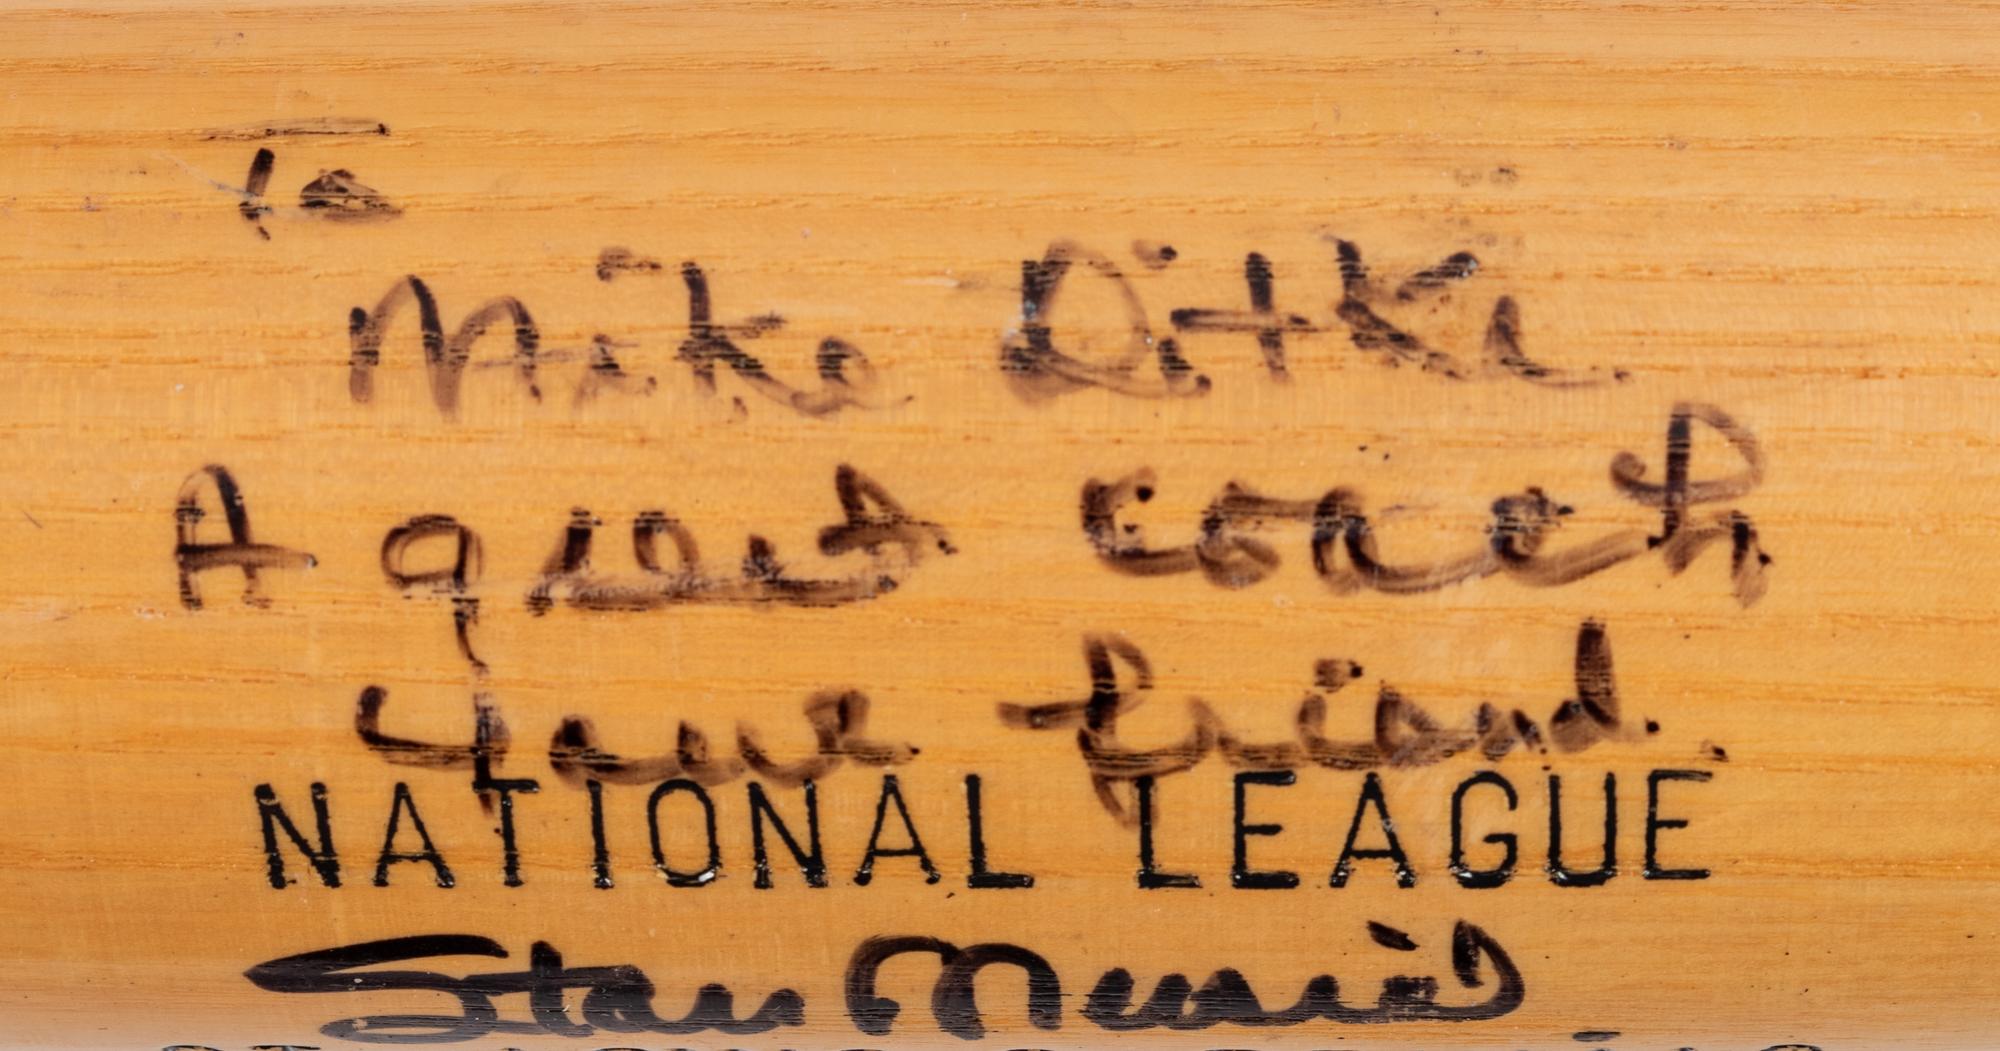 To
Mike Ditki
A great coach
your friend.
NATIONAL LEAGUE
Stan Musial